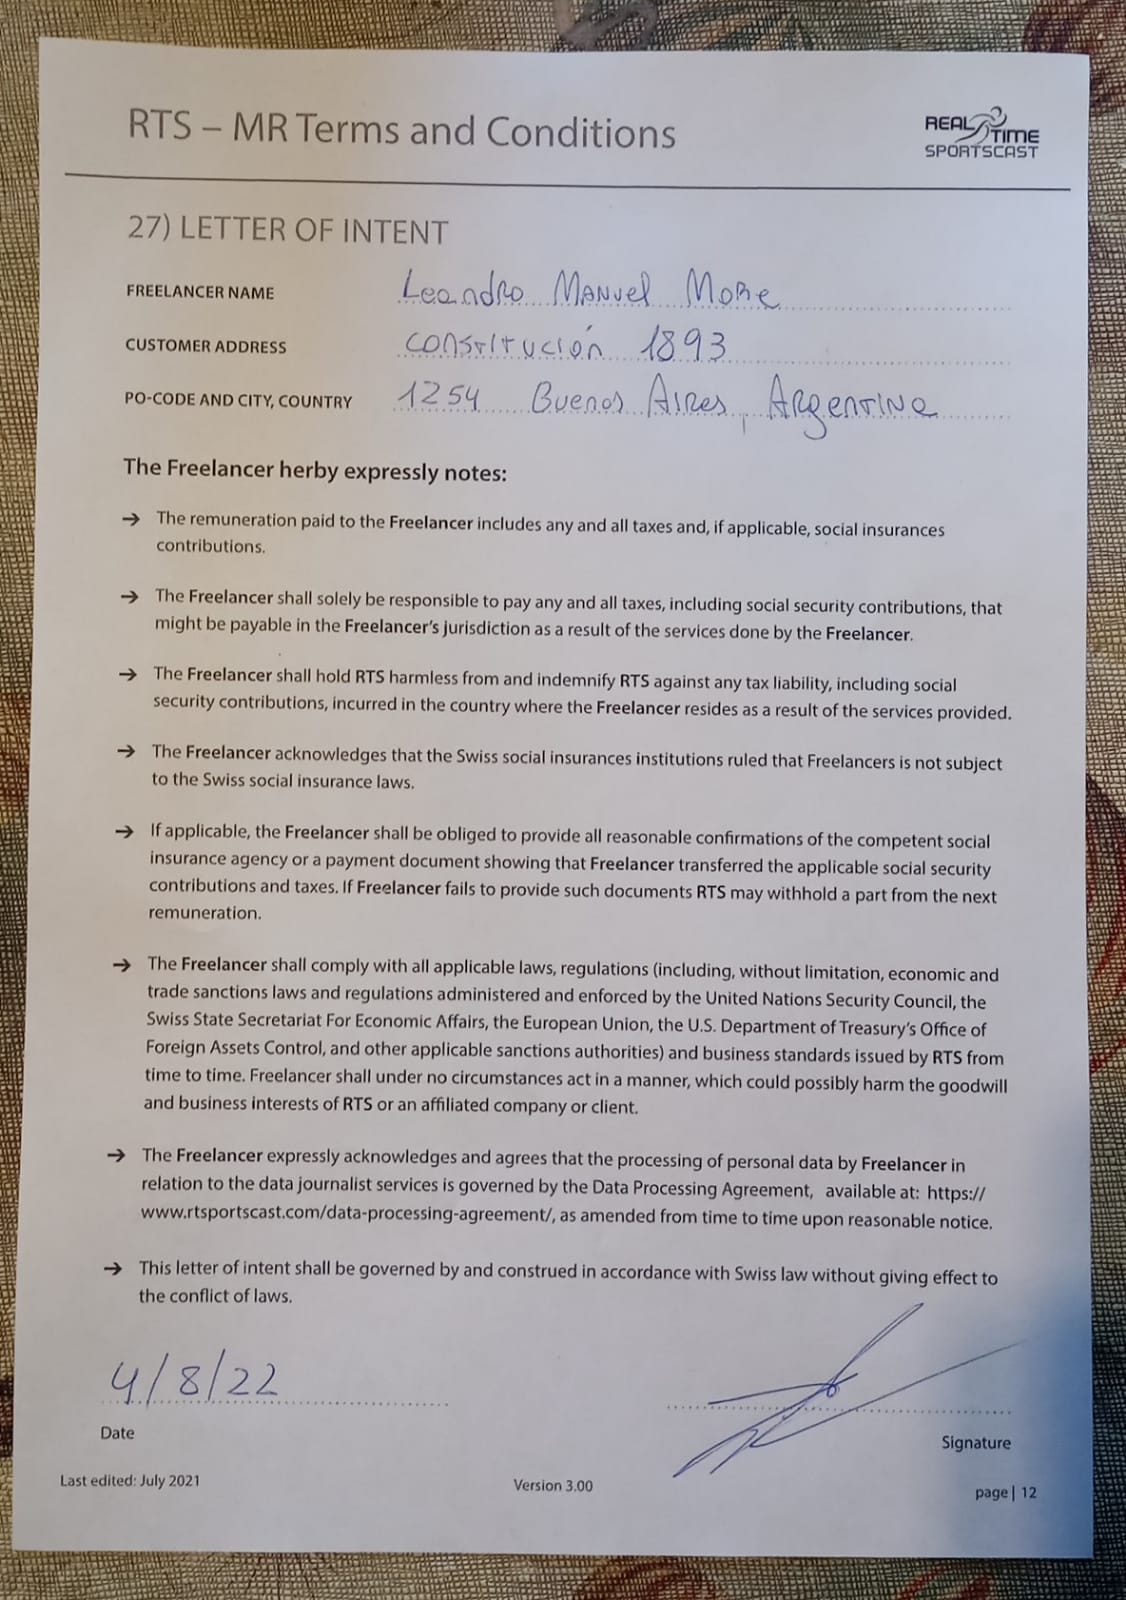 RTS – MR Terms and Conditions
REAL TIME
SPORTSCAST
27) LETTER OF INTENT
FREELANCER NAME Leandro Manuel More
CUSTOMER ADDRESS Constitución 1893
PO-CODE AND CITY, COUNTRY 1254 Buenos Aires, Argentina
The Freelancer herby expressly notes:
→ The remuneration paid to the Freelancer includes any and all taxes and, if applicable, social insurances
contributions.
→ The Freelancer shall solely be responsible to pay any and all taxes, including social security contributions, that
might be payable in the Freelancer's jurisdiction as a result of the services done by the Freelancer.
→ The Freelancer shall hold RTS harmless from and indemnify RTS against any tax liability, including social
security contributions, incurred in the country where the Freelancer resides as a result of the services provided.
→ The Freelancer acknowledges that the Swiss social insurances institutions ruled that Freelancers is not subject
to the Swiss social insurance laws.
→ If applicable, the Freelancer shall be obliged to provide all reasonable confirmations of the competent social
insurance agency or a payment document showing that Freelancer transferred the applicable social security
contributions and taxes. If Freelancer fails to provide such documents RTS may withhold a part from the next
remuneration.
→ The Freelancer shall comply with all applicable laws, regulations (including, without limitation, economic and
trade sanctions laws and regulations administered and enforced by the United Nations Security Council, the
Swiss State Secretariat For Economic Affairs, the European Union, the U.S. Department of Treasury's Office of
Foreign Assets Control, and other applicable sanctions authorities) and business standards issued by RTS from
time to time. Freelancer shall under no circumstances act in a manner, which could possibly harm the goodwill
and business interests of RTS or an affiliated company or client.
→ The Freelancer expressly acknowledges and agrees that the processing of personal data by Freelancer in
relation to the data journalist services is governed by the Data Processing Agreement, available at: https://
www.rtsportscast.com/data-processing-agreement/, as amended from time to time upon reasonable notice.
→ This letter of intent shall be governed by and construed in accordance with Swiss law without giving effect to
the conflict of laws.
4/8/22
Date
Signature
Last edited: July 2021
Version 3.00
page | 12